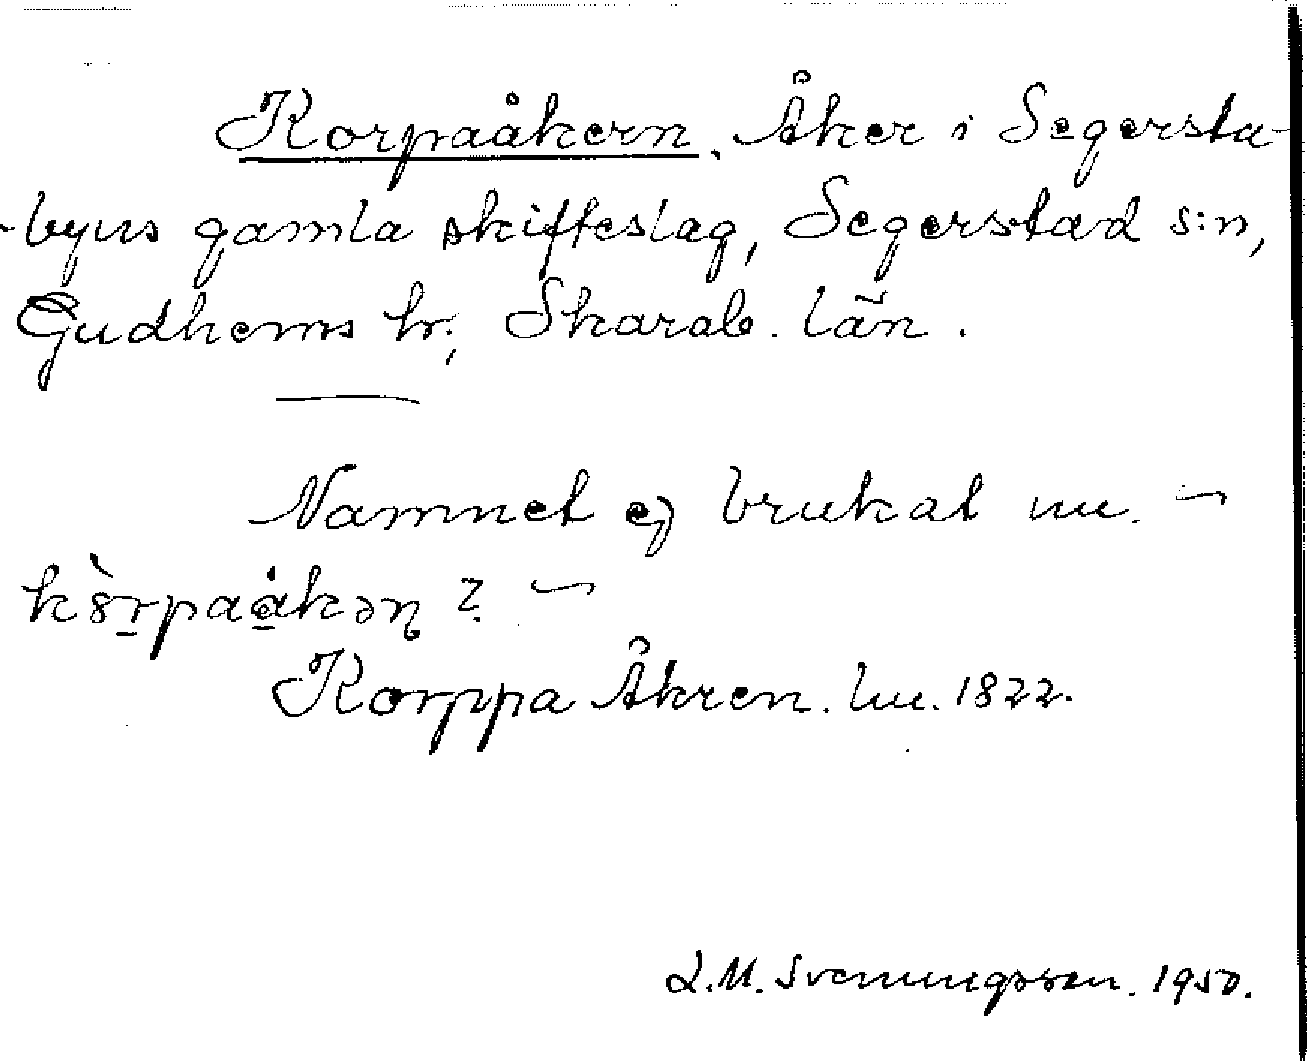 Korpaåkern. Åker i Segersta-
-byns gamla skifteslag, Segerstad s:n,
Gudhems hr., Skarab. län.
Namnet ej brukat nu. –
kòrpaåkəɳ ? –
Korppa Åkren. lm. 1822.
L.M. Svenungsson. 1950.